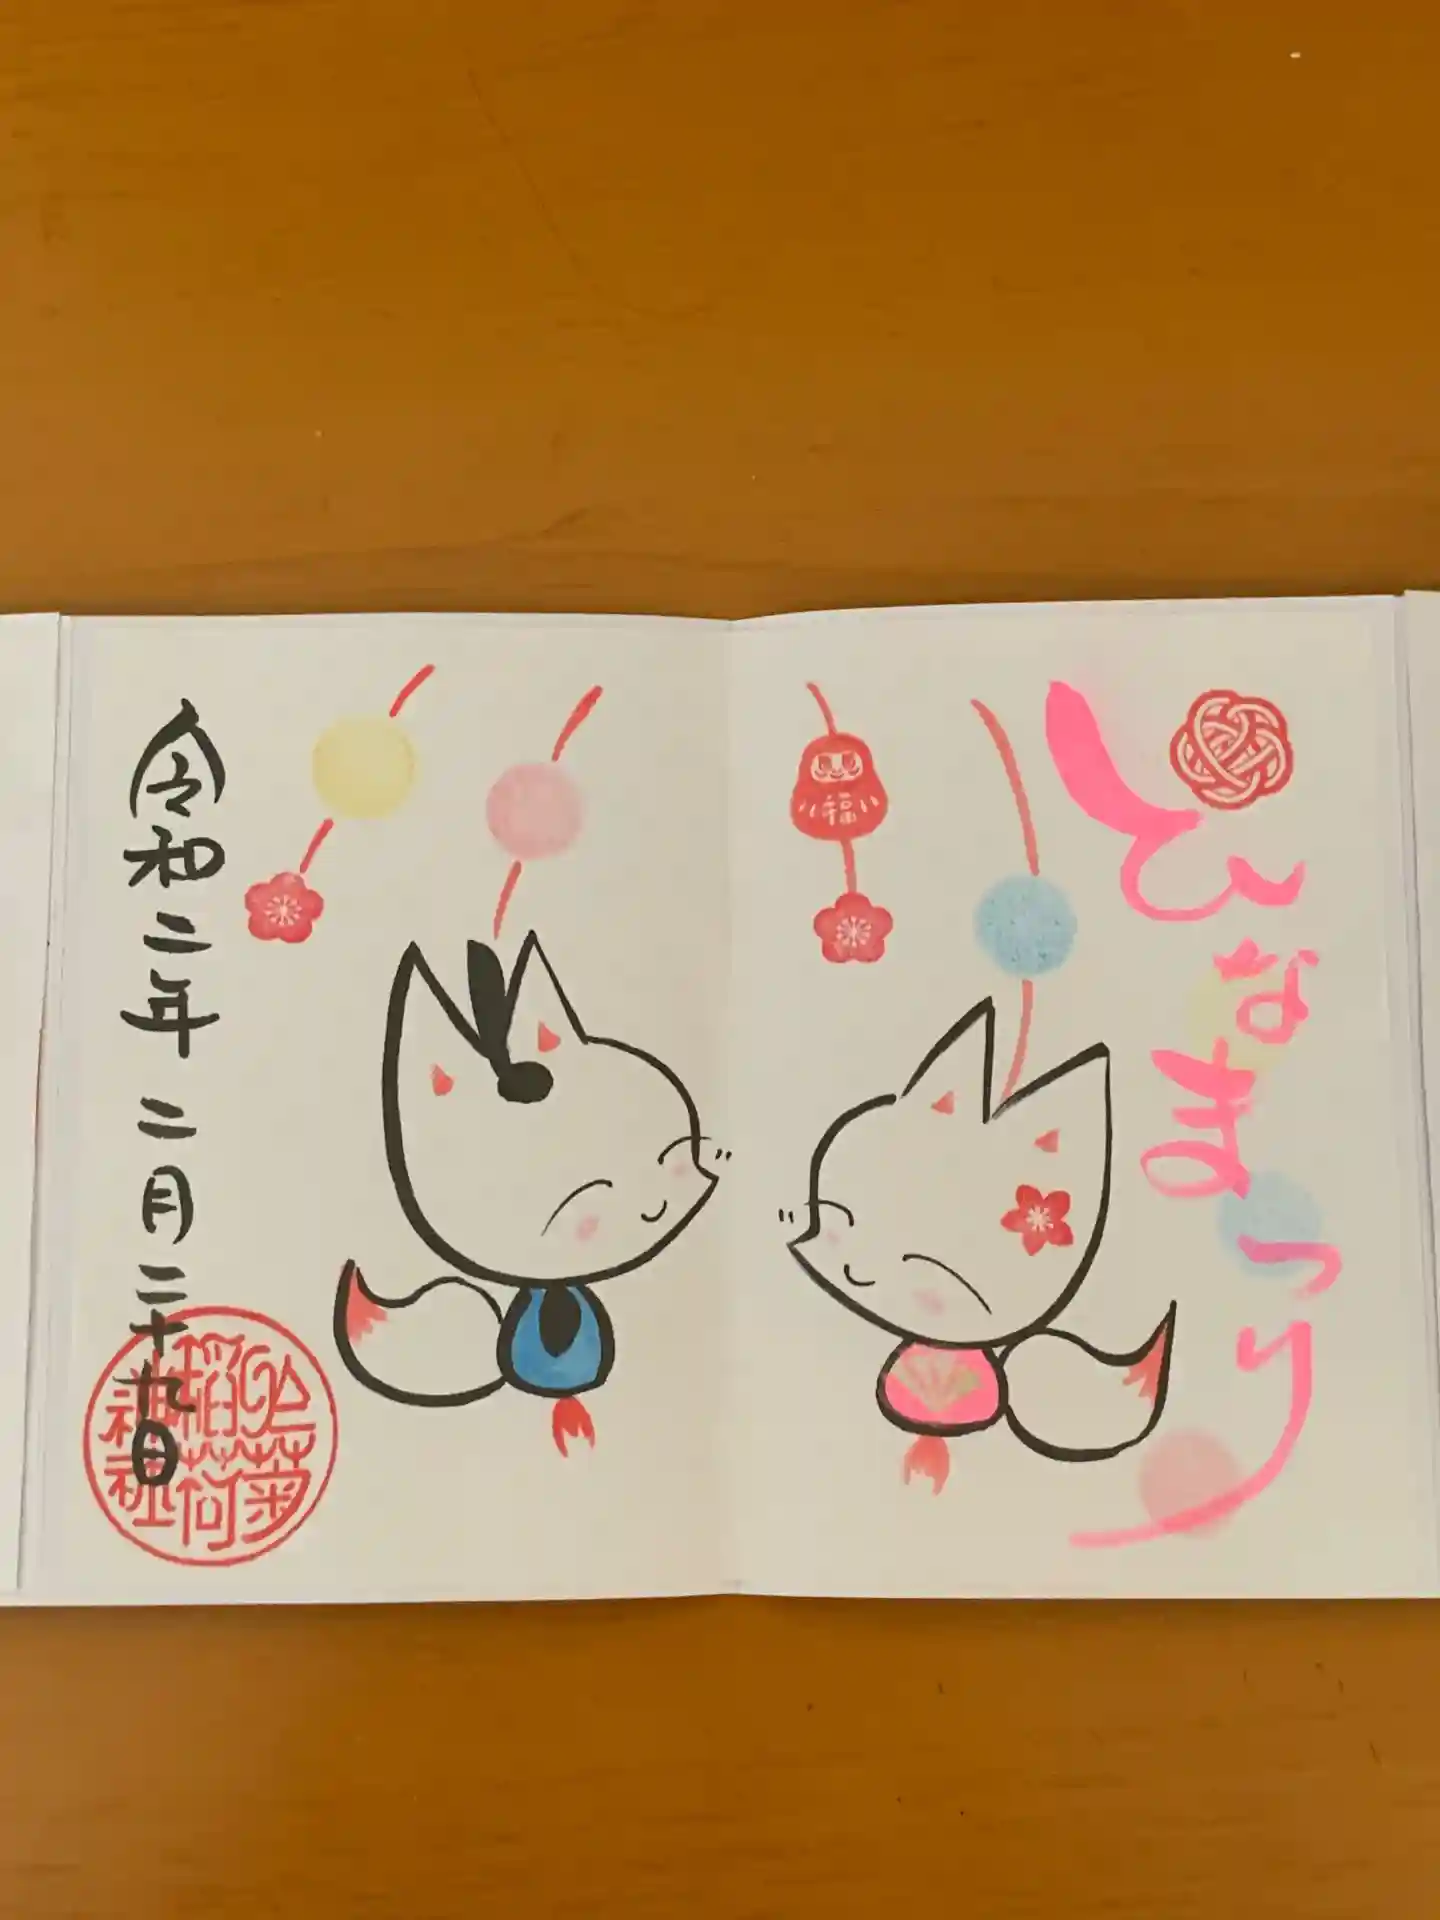 ひなまつり
福
令和二年 二月二十九日
稲荷
神社